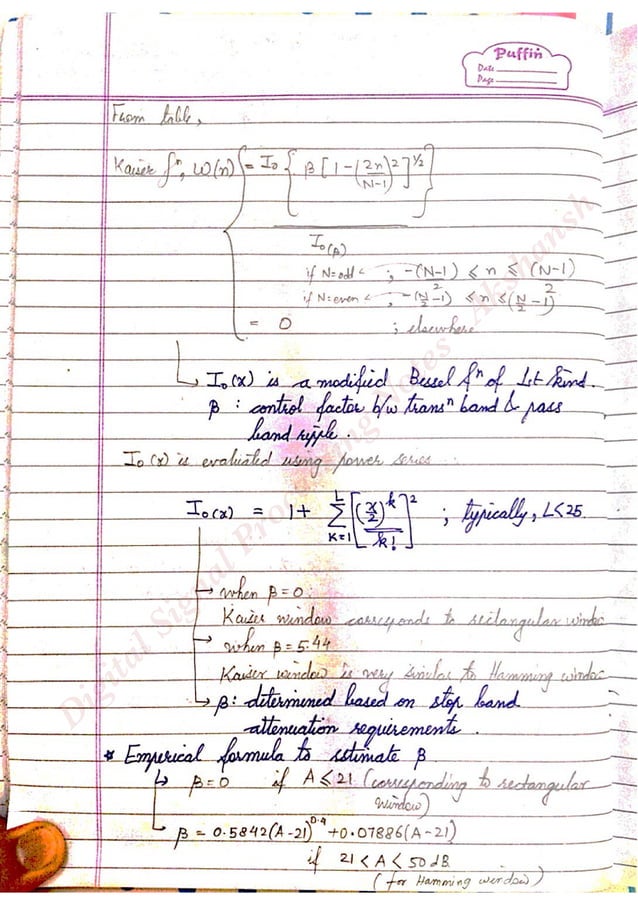 Puffin
Date
Page
From table,
Kaiser fⁿ, W(n) = I₀ { β [ 1 - (2n/N-1)² ]^1/2 }
I₀(β)
if N=odd ; -(N-1)/2 ≤ n ≤ (N-1)/2
if N=even ; -(N/2 -1) ≤ n ≤ (N/2 -1)
= 0 ; elsewhere
↳ I₀(x) is a modified Bessel fⁿ of 1st kind.
β : control factor b/w transⁿ band & pass
band ripple.
I₀(x) is evaluated using power series
I₀(x) = 1+ Σ_{K=1}^{L} [ (x/2)^k / k! ]² ; typically, L<25.
→ when β=0.
Kaiser window corresponds to rectangular window
→ when β=5.44
Kaiser window is very similar to Hamming window
→ β: determined based on stop band
attenuation requirements.
* Emperical formula to estimate β
↳ β=0 if A≤21 (corresponding to rectangular
window)
↳ β = 0.5842(A-21)^0.4 +0.07886(A-21)
if 21<A<50dB
(for Hamming window)
Digital Signal Processing Notes - Akshansh